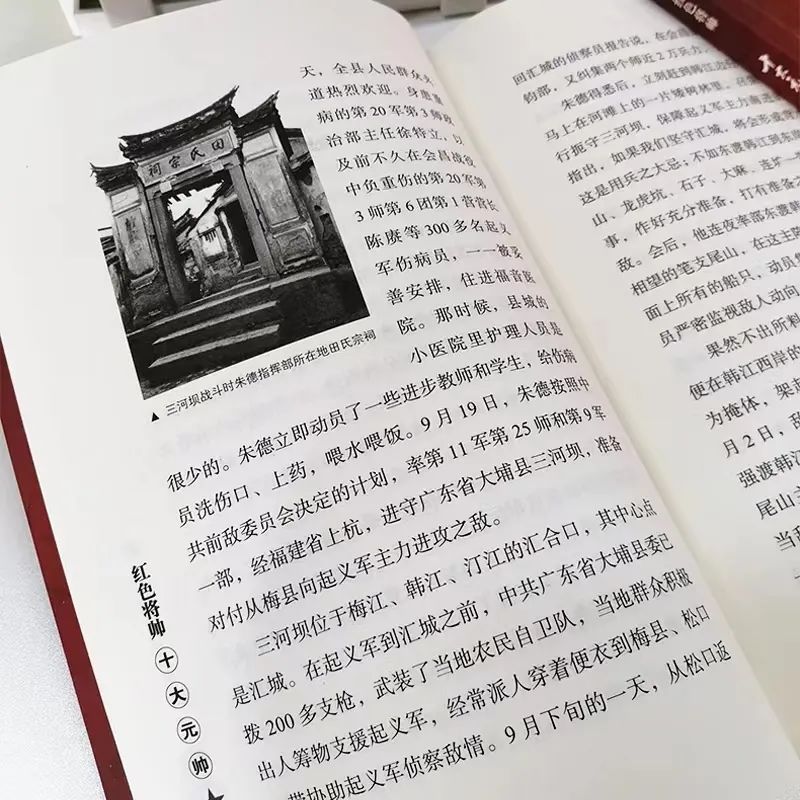 天，全县人民群众夹
道热烈欢迎。身患重
病的第20军第3师政
治部主任徐特立，以
及前不久在会昌战役
中负重伤的第20军第
3师第6团第1营营长
陈赓等300多名起义
军伤病员，一一被妥
善安排，住进福音医
院。那时候，县城的
小医院里护理人员是
田氏宗祠
▲ 三河坝战斗时朱德指挥部所在地田氏宗祠
很少的。朱德立即动员了一些进步教师和学生，给伤病
员洗伤口、上药，喂水喂饭。9月19日，朱德按照中
共前敌委员会决定的计划，率第11军第25师和第9军
一部，经福建省上杭，进守广东省大埔县三河坝，准备
对付从梅县向起义军主力进攻之敌。
三河坝位于梅江、韩江、汀江的汇合口，其中心点
是汇城。在起义军到汇城之前，中共广东省大埔县委已
拨200多支枪，武装了当地农民自卫队，当地群众积极
出人筹物支援起义军，经常派人穿着便衣到梅县、松口
带协助起义军侦察敌情。9月下旬的一天，从松口返
红色将帅
十大元帅
回汇城的侦察员报告说，在会
钧部，又纠集两个师近2万兵力，
朱德得悉后，立刻赶到韩江边
马上在河滩上的一片矮树林里，召
行扼守三河坝，保障起义军主力南进
指出，如果我们坚守汇城，将会形成背
这是用兵之大忌；不如东渡韩江到东
山、龙虎坑、石子、大麻、连炉一
事，作好充分准备，打有准备之
敌。会后，他连夜率部东渡韩
相望的笔支尾山，在这主阵
面上所有的船只，动员
员严密监视敌人动向
果然不出所料
便在韩江西岸的
为掩体，架起
月2日，敌
强渡韩江
尾山主
当敌